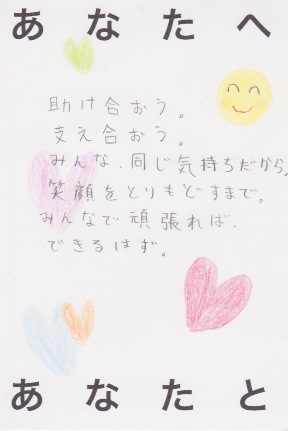 あなたへ
助け合おう。
支え合おう。
みんな、同じ気持ちだから。
笑顔をとりもどすまで。
みんなで頑張れば、
できるはず。
あなたと